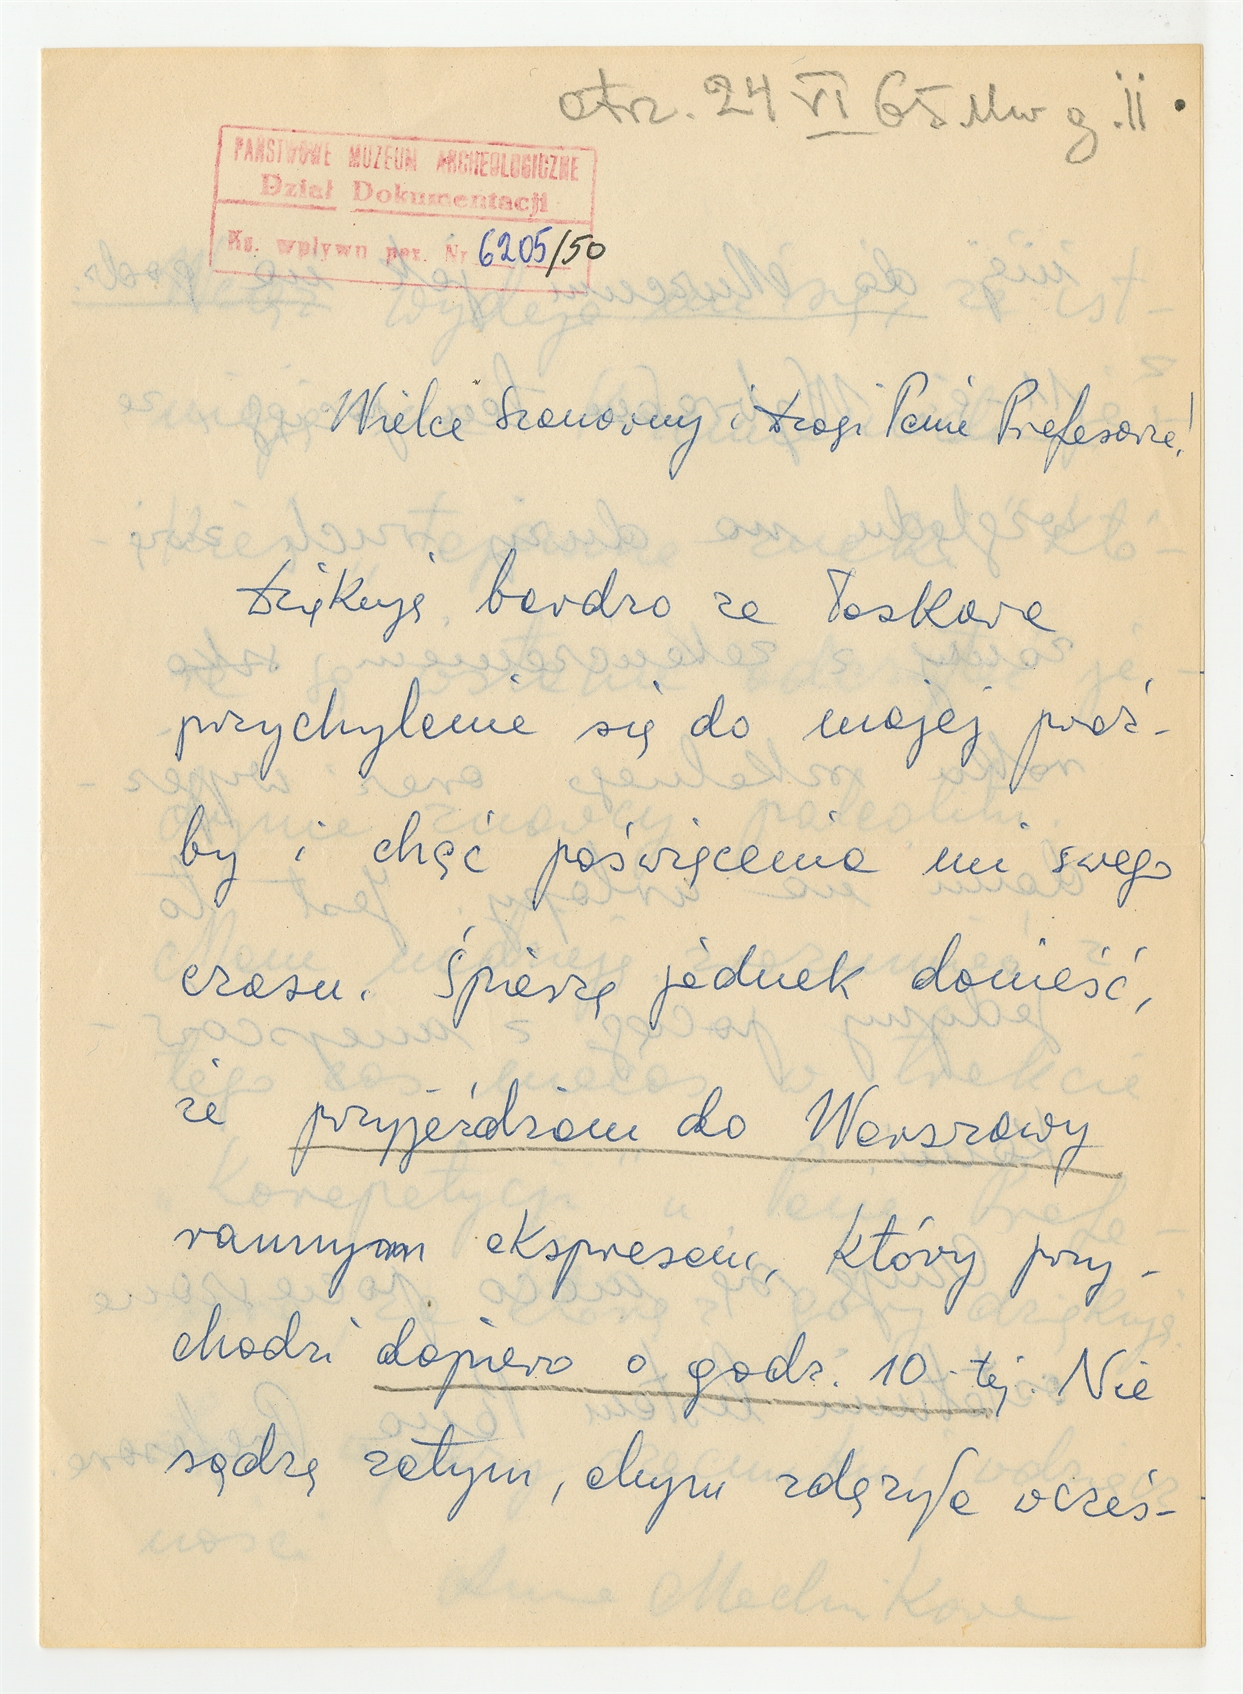 otrz. 24 VI 65 Mw g. 11.
PAŃSTWOWE MUZEUM ARCHEOLOGICZNE
Dział Dokumentacji
Ks. wpływu poz. Nr 6205/50
Wielce Szanowny i Drogi Panie Profesorze!
Dziękuję bardzo za łaskawe
przychylenie się do mojej proś-
by i chęć poświęcenia mi swego
czasu. Śpieszę jednak donieść,
że przyjeżdżam do Warszawy
rannym ekspresem, który przy-
chodzi dopiero o godz. 10-tej. Nie
sądzę zatym, abym zdążyła wcześ-